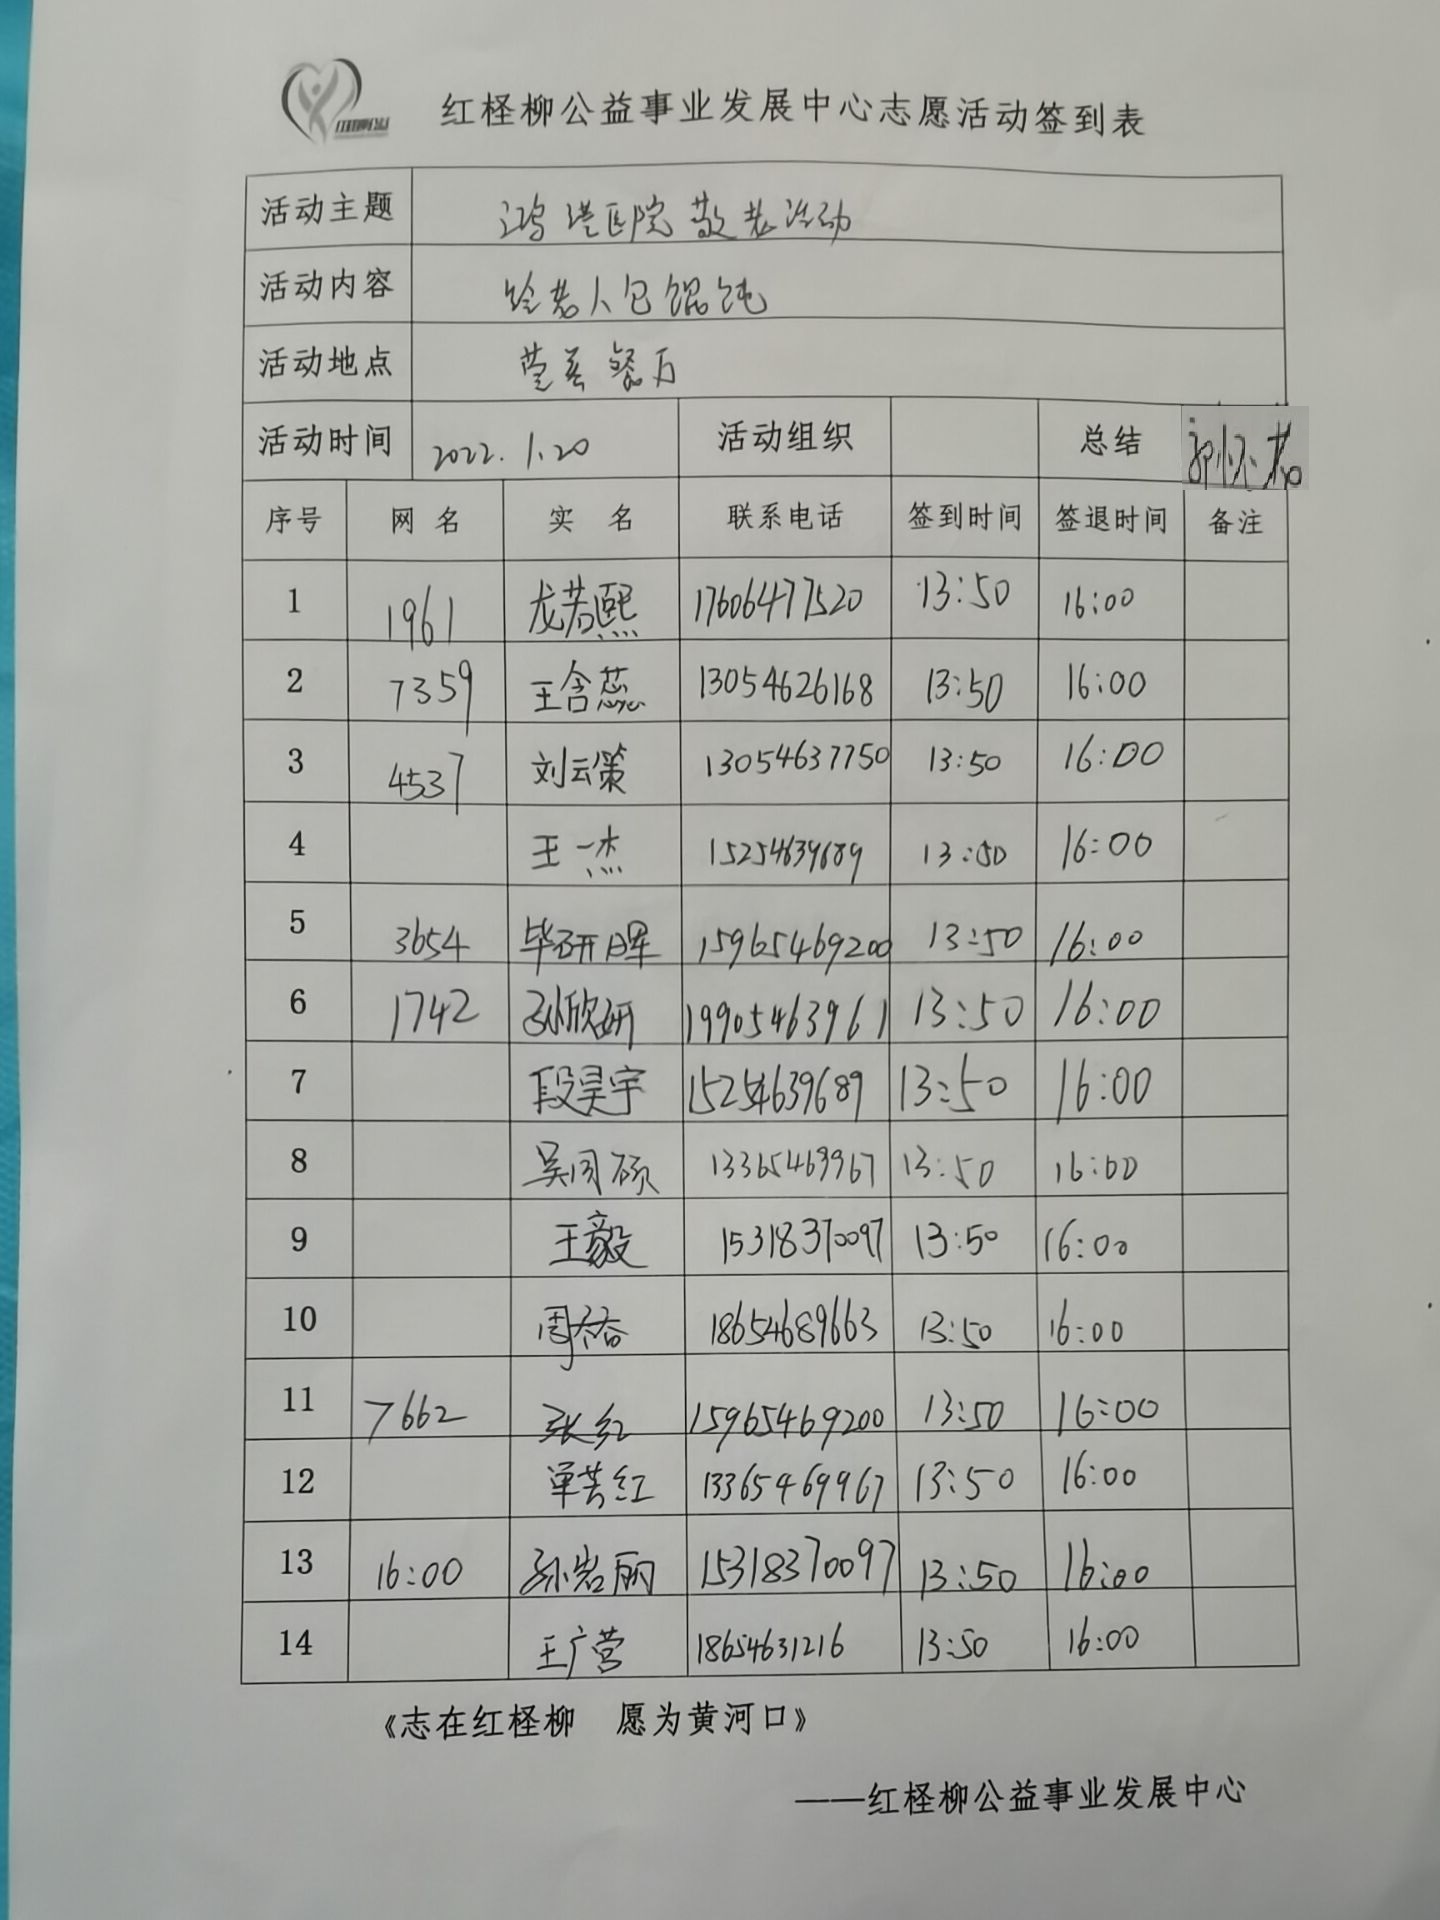 红柽柳公益事业发展中心志愿活动签到表
活动主题 鸿港医院敬老活动
活动内容 给老人包馄饨
活动地点
活动时间 2022.1.20 活动组织 总结
序号 网名 实名 联系电话 签到时间 签退时间 备注
1 1961 龙若熙 17606477520 13:50 16:00
2 7359 王含蕊 13054626168 13:50 16:00
3 4537 刘云策 13054637750 13:50 16:00
4 王一杰 15254639689 13:50 16:00
5 3654 毕研晖 15965469200 13:50 16:00
6 1742 孙欣妍 19905463961 13:50 16:00
7 段昊宇 15254639689 13:50 16:00
8 吴同硕 13365469967 13:50 16:00
9 王毅 15318370097 13:50 16:00
10 周 18654689663 13:50 16:00
11 7662 张红 15965469200 13:50 16:00
12 单芸红 13365469967 13:50 16:00
13 16:00 孙岩丽 15318370097 13:50 16:00
14 王广营 18654631216 13:50 16:00
《志在红柽柳 愿为黄河口》
——红柽柳公益事业发展中心